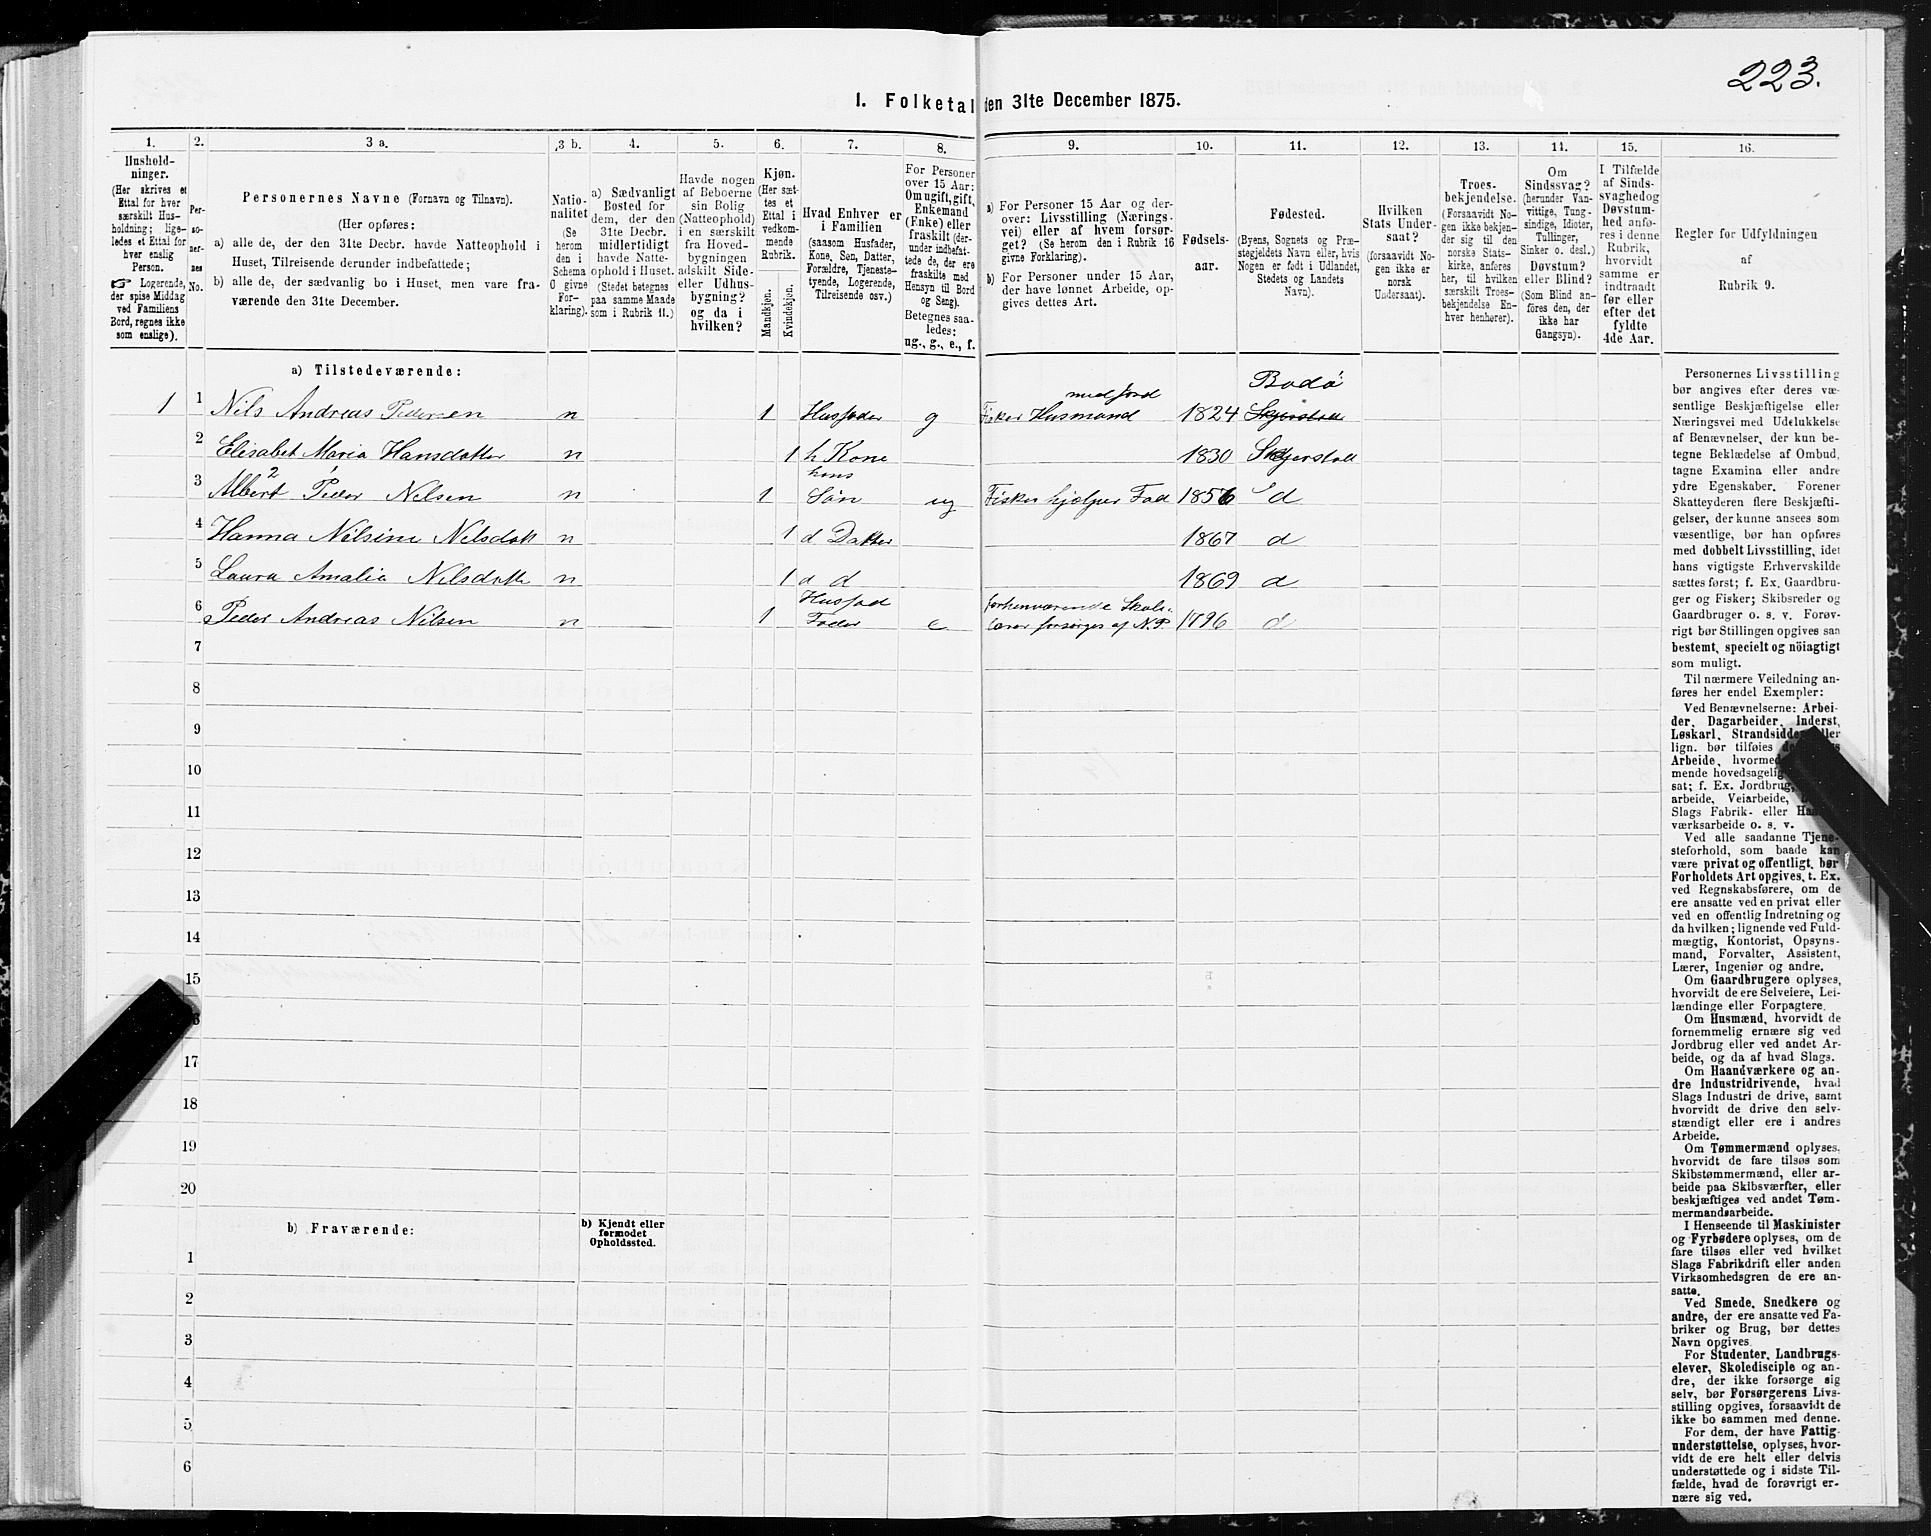 223.
I. Folketal den 31te December 1875.
1. 2. 3 a. 3 b. 4. 5. 6. 7. 8. 9. 10. 11. 12. 13. 14. 15. 16.
Hushold-
ninger.
(Her skrives et
Ettal for hver
særskilt Hus-
holdning; lige-
ledes et Ettal for
hver enslig
Person.
☞ Logerende,
der spise Middag
ved Familiens
Bord, regnes ikke
som enslige).
Per-
so-
ner-
nes
No.
Personernes Navne (Fornavn og Tilnavn).
(Her opføres:
a) alle de, der den 31te Decbr. havde Natteophold i
Huset, Tilreisende derunder indbefattede;
b) alle de, der sædvanlig bo i Huset, men vare fra-
værende den 31te December.
Natio-
nalitet
(Se
herom
den i
Schema
O givne
For-
klaring).
a) Sædvanligt
Bosted for
dem, der den
31te Decbr.
midlertidigt
havde Natte-
ophold i Huset.
(Stedet betegnes
paa samme Maade
som i Rubrik 11.)
Havde nogen
af Beboerne
sin Bolig
(Natteophold)
i en særskilt
fra Hoved-
bygningen
adskilt Side-
eller Udhus-
bygning?
og da i
hvilken?
Kjøn.
(Her sæt-
tes et
Ettal i
vedkom-
mende
Rubrik.
Mandkjøn.
Kvindekjøn.
Hvad Enhver er
i Familien
(saasom Husfader,
Kone, Søn, Datter,
Forældre, Tjeneste-
tyende, Logerende,
Tilreisende osv.)
For Personer
over 15 Aar:
Om ugift, gift,
Enkemand
(Enke) eller
fraskilt (der-
under indbefat-
tede de, der ere
fraskilte med
Hensyn til Bord
og Seng).
Betegnes saa-
ledes:
ug., g., e., f.
a) For Personer 15 Aar og der-
over: Livsstilling (Nærings-
vei) eller af hvem forsør-
get? (Se herom den i Rubrik 16
givne Forklaring).
b) For Personer under 15 Aar,
der have lønnet Arbeide, op-
gives dettes Art.
Fødsels-
aar.
Fødested.
(Byens, Sognets og Præ-
stegjeldets Navn eller, hvis
Nogen er født i Udlandet,
Stedets og Landets
Navn).
Hvilken
Stats Under-
saat?
(forsaavidt No-
gen ikke er
norsk
Undersaat).
Troes-
bekjendelse.
(Forsaavidt No-
gen ikke bekjen-
der sig til den
norske Stats-
kirke, anføres
her, til hvilken
særskilt Troes-
bekjendelse En-
hver henhører).
Om
Sindssvag?
(herunder Van-
vittige, Tung-
sindige, Idioter,
Tullinger,
Sinker o. desl.)
Døvstum?
eller Blind?
(Som Blind an-
føres den, der
ikke har
Gangsyn).
I Tilfælde
af Sinds-
svaghed og
Døvstum-
hed anfø-
res i denne
Rubrik,
hvorvidt
samme er
indtraadt
før eller
efter det
fyldte
4de Aar.
Regler for Udfyldningen
af
Rubrik 9.
a) Tilstedeværende:
med Jord Bodø
1 1 Nils Andreas Pedersen n 1 Husfader g Fisker Husmand 1824 Skjerstad
2 Elisabet Maria Hansdatter n 1 h Kone 1830 Skjerstad
3 Albert Peder Nilsen n 1 hans Søn ug Fisker hjælper Fad 1856 d
4 Hanna Nilsine Nilsdatt n 1 d Datter 1867 d
5 Laura Amalia Nilsdatte n 1 d d 1869 d
Husfad forhenværende Skole-
6 Peder Andreas Nilsen n 1 Fader e lærer forsørges af N. P. 1796 d
7
8
9
10
11
12
13
14
15
17
18
19
20
b) Fraværende:
b) Kjendt eller
formodet
Opholdssted.
1
2
3
4
5
6
Personernes Livsstilling
bør angives efter deres væ-
sentlige Beskjæftigelse eller
Næringsvei med Udelukkelse
af Benævnelser, der kun be-
tegne Beklædelse af Ombud,
tagne Examina eller andre
ydre Egenskaber. Forener
Skatteyderen flere Beskjæfti-
gelser, der kunne ansees som
væsentlige, bør han opføres
med dobbelt Livsstilling, idet
hans vigtigste Erhvervskilde
sættes først; f. Ex. Gaardbru-
ger og Fisker; Skibsreder og
Gaardbruger o. s. v. Forøv-
rigt bør Stillingen opgives saa
bestemt, specielt og nöiagtigt
som muligt.
Til nærmere Veiledning an-
føres her endel Exempler:
Ved Benævnelserne: Arbei-
der, Dagarbeider, Inderst,
Løskarl, Strandsidder eller
lign. bør tilføies
Arbeide, hvormed
mende hovedsagelig
sat; f. Ex. Jordbrug,
arbeide, Veiarbeide,
Slags Fabrik- eller
værksarbeide o. s. v.
Ved alle saadanne Tjene-
steforhold, som baade kan
være privat og offentligt, bør
Forholdets Art opgives, f. Ex.
ved Regnskabsførere, om de
ere ansatte ved en privat eller
ved en offentlig Indretning og
da hvilken; lignende ved Fuld-
mægtig, Kontorist, Opsyns-
mand, Forvalter, Assistent,
Lærer, Ingeniør og andre.
Om Gaardbrugere oplyses,
hvorvidt de ere Selveiere, Lei-
lændinge eller Forpagtere.
Om Husmænd, hvorvidt de
fornemmelig ernære sig ved
Jordbrug eller ved andet Ar-
beide, og da af hvad Slags.
Om Haandværkere og an-
dre Industridrivende, hvad
Slags Industri de drive, samt
hvorvidt de drive den selv-
stændigt eller ere i andres
Arbeide.
Om Tømmermænd oplyses,
hvorvidt de fare tilsøs som
Skibstømmermænd, eller ar-
beide paa Skibsværfter, eller
beskjæftiges ved andet Tøm-
mermandsarbeide.
I Henseende til Maskinister
og Fyrbødere oplyses, om de
fare tilsøs eller ved hvilket
Slags Fabrikdrift eller anden
Virksomhedsgren de ere an-
satte.
Ved Smede, Snedkere og
andre, der ere ansatte ved Fa-
briker og Brug, bør dettes
Navn opgives
For Studenter, Landbrugs-
elever, Skoledisciple og an-
dre, der ikke forsørge sig
selv, bør Forsørgerens Livs-
stilling opgives, forsaavidt de
ikke bo sammen med denne.
For dem, der have Fattig-
understøttelse, oplyses, hvor-
vidt de ere helt eller delvis
understøttede og i sidste Til-
fælde, hvad de forøvrigt er-
nære sig ved.